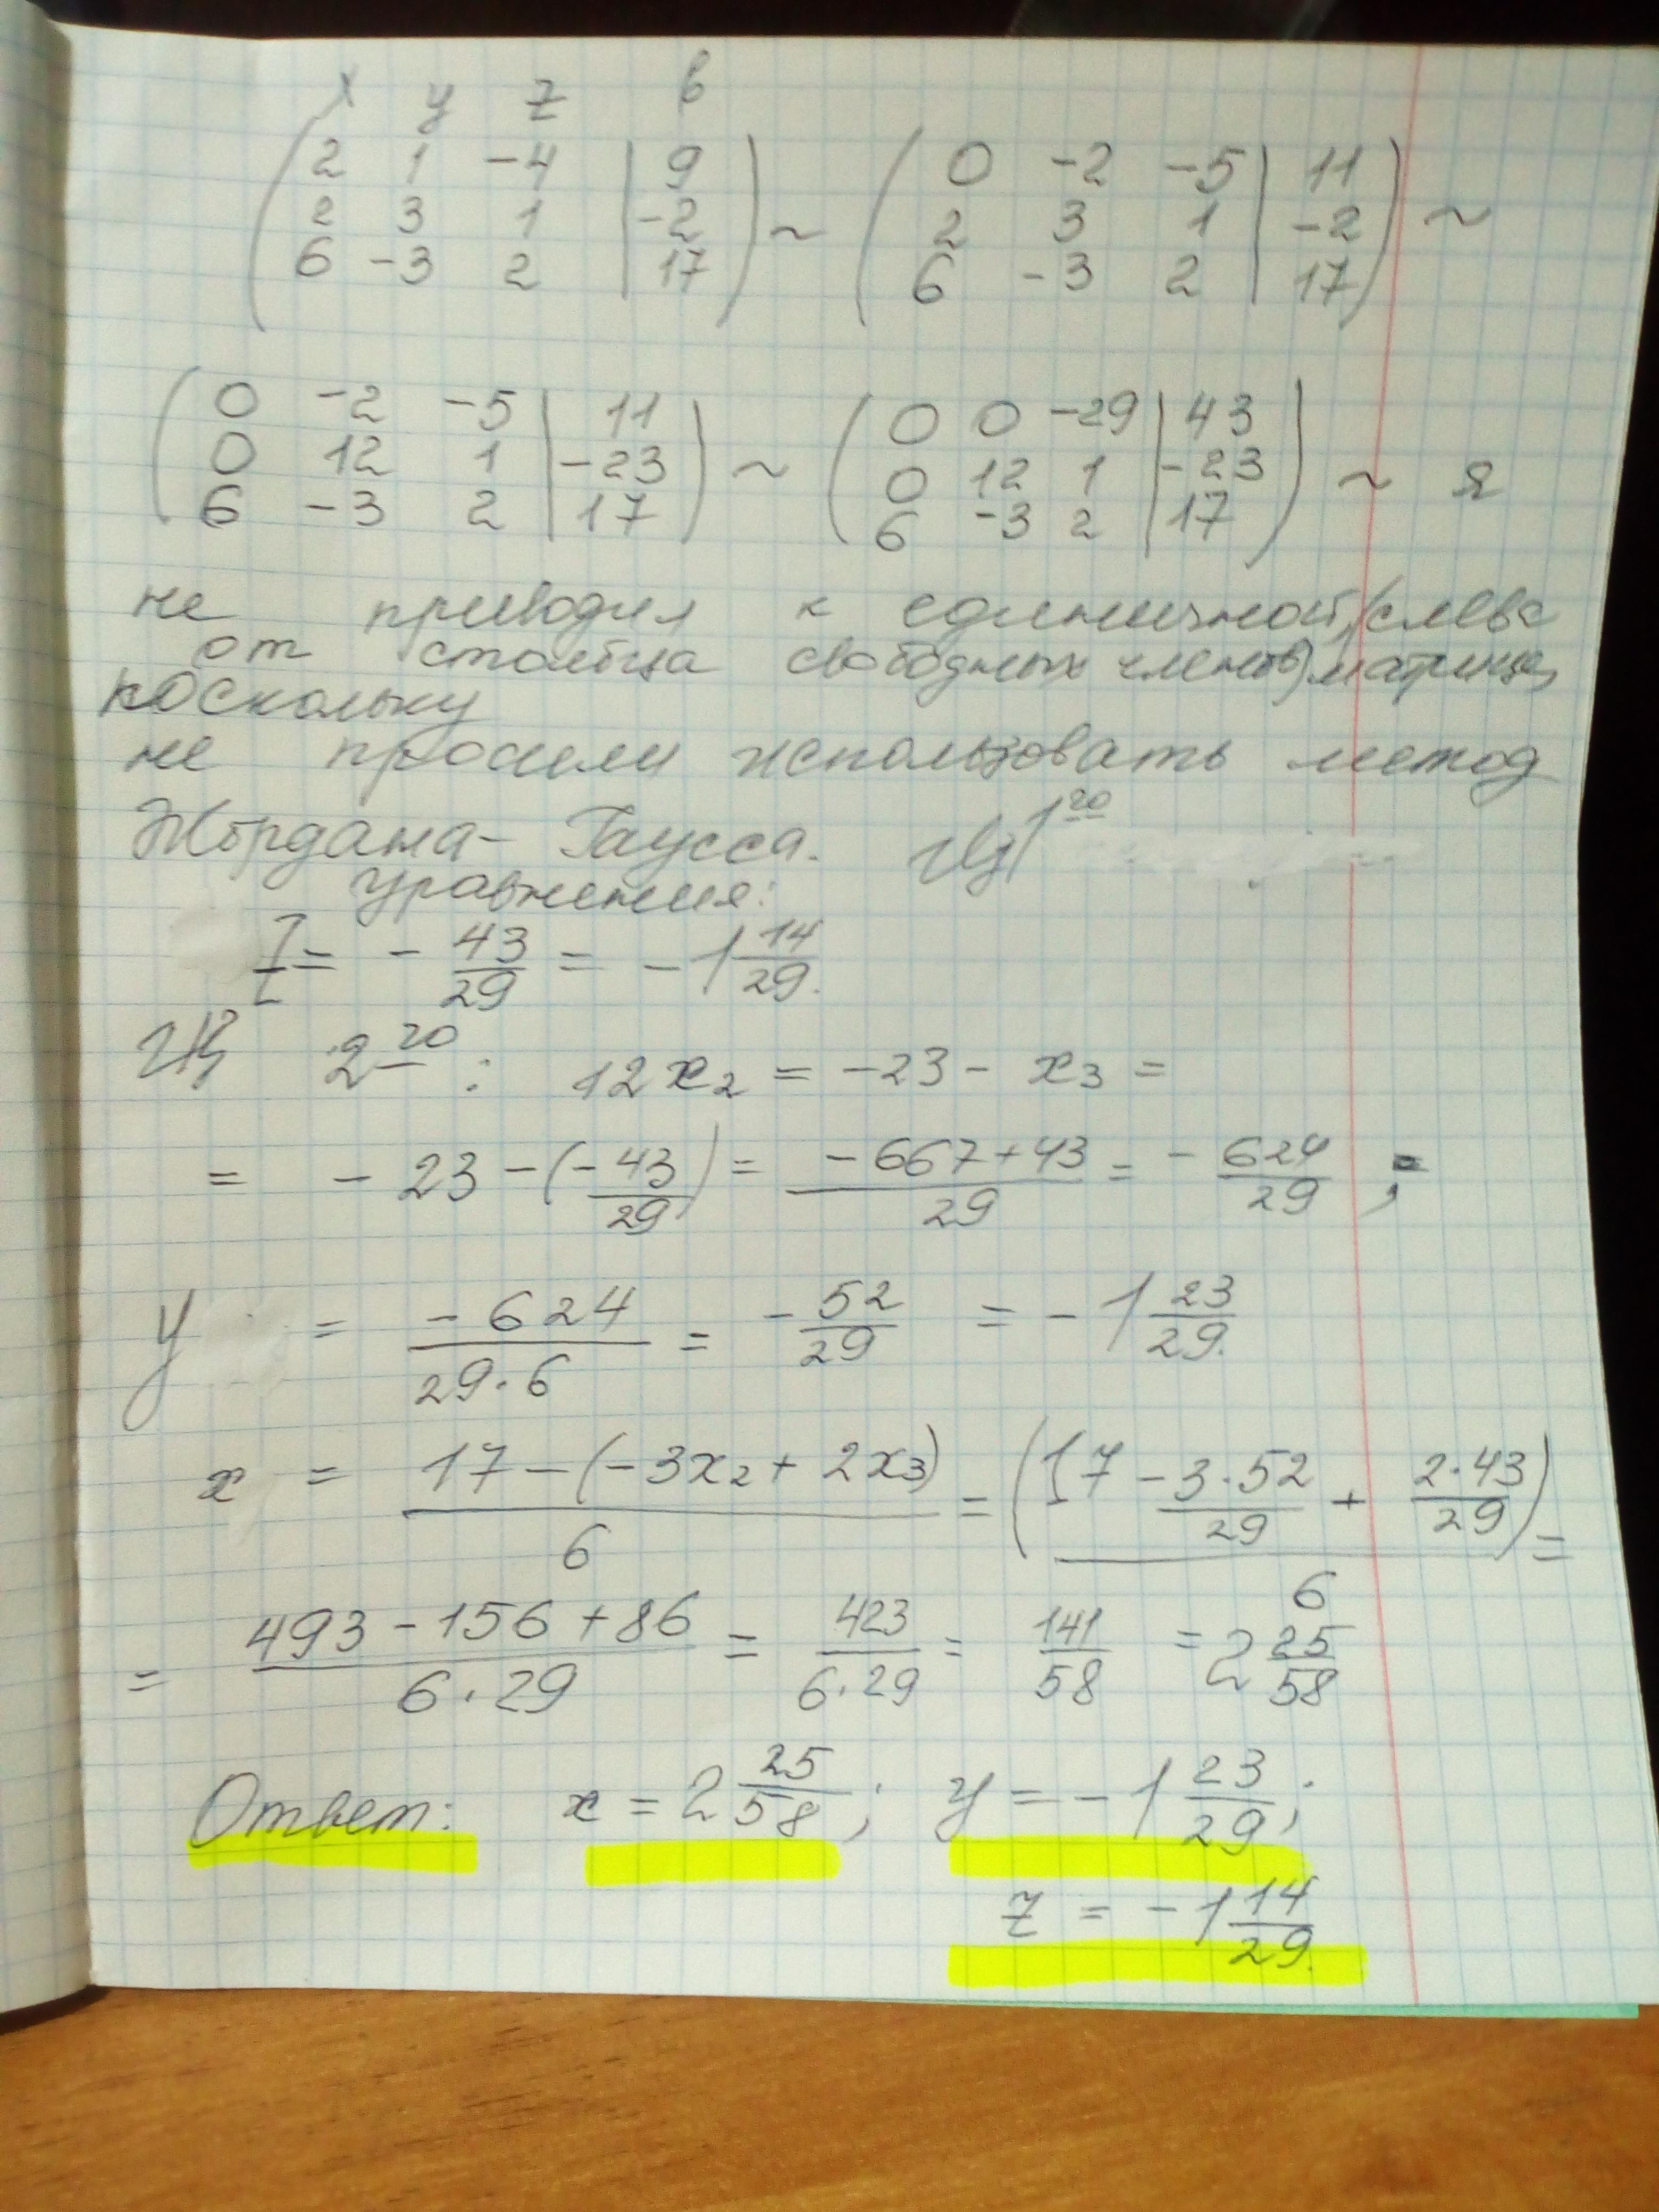 x y z b
( 2 1 -4 | 9 ) ~ ( 0 -2 -5 | 11 ) ~
( 2 3 1 | -2 ) ( 2 3 1 | -2 )
( 6 -3 2 | 17 ) ( 6 -3 2 | 17 )
( 0 -2 -5 | 11 ) ~ ( 0 0 -29 | 43 ) ~ я
( 0 12 1 | -23 ) ( 0 12 1 | -23 )
( 6 -3 2 | 17 ) ( 6 -3 2 | 17 )
не приводил к единичной, (слева
от столбца свободных членов) матрице,
поскольку
не просили использовать метод
Жордана-Гаусса. Из 1го
уравнения:
z = - 43/29 = -1 14/29.
Из 2го : 12x₂ = -23 - x₃ =
= -23 - (-43/29) = (-667+43)/29 = -624/29 ;
y = -624/(29·6) = -52/29 = -1 23/29.
x = (17-(-3x₂+2x₃))/6 = (17 - 3·52/29 + 2·43/29)/6 =
= (493-156+86)/(6·29) = 423/(6·29) = 141/58 = 2 25/58
Ответ: x = 2 25/58 ; y = -1 23/29;
z = -1 14/29.